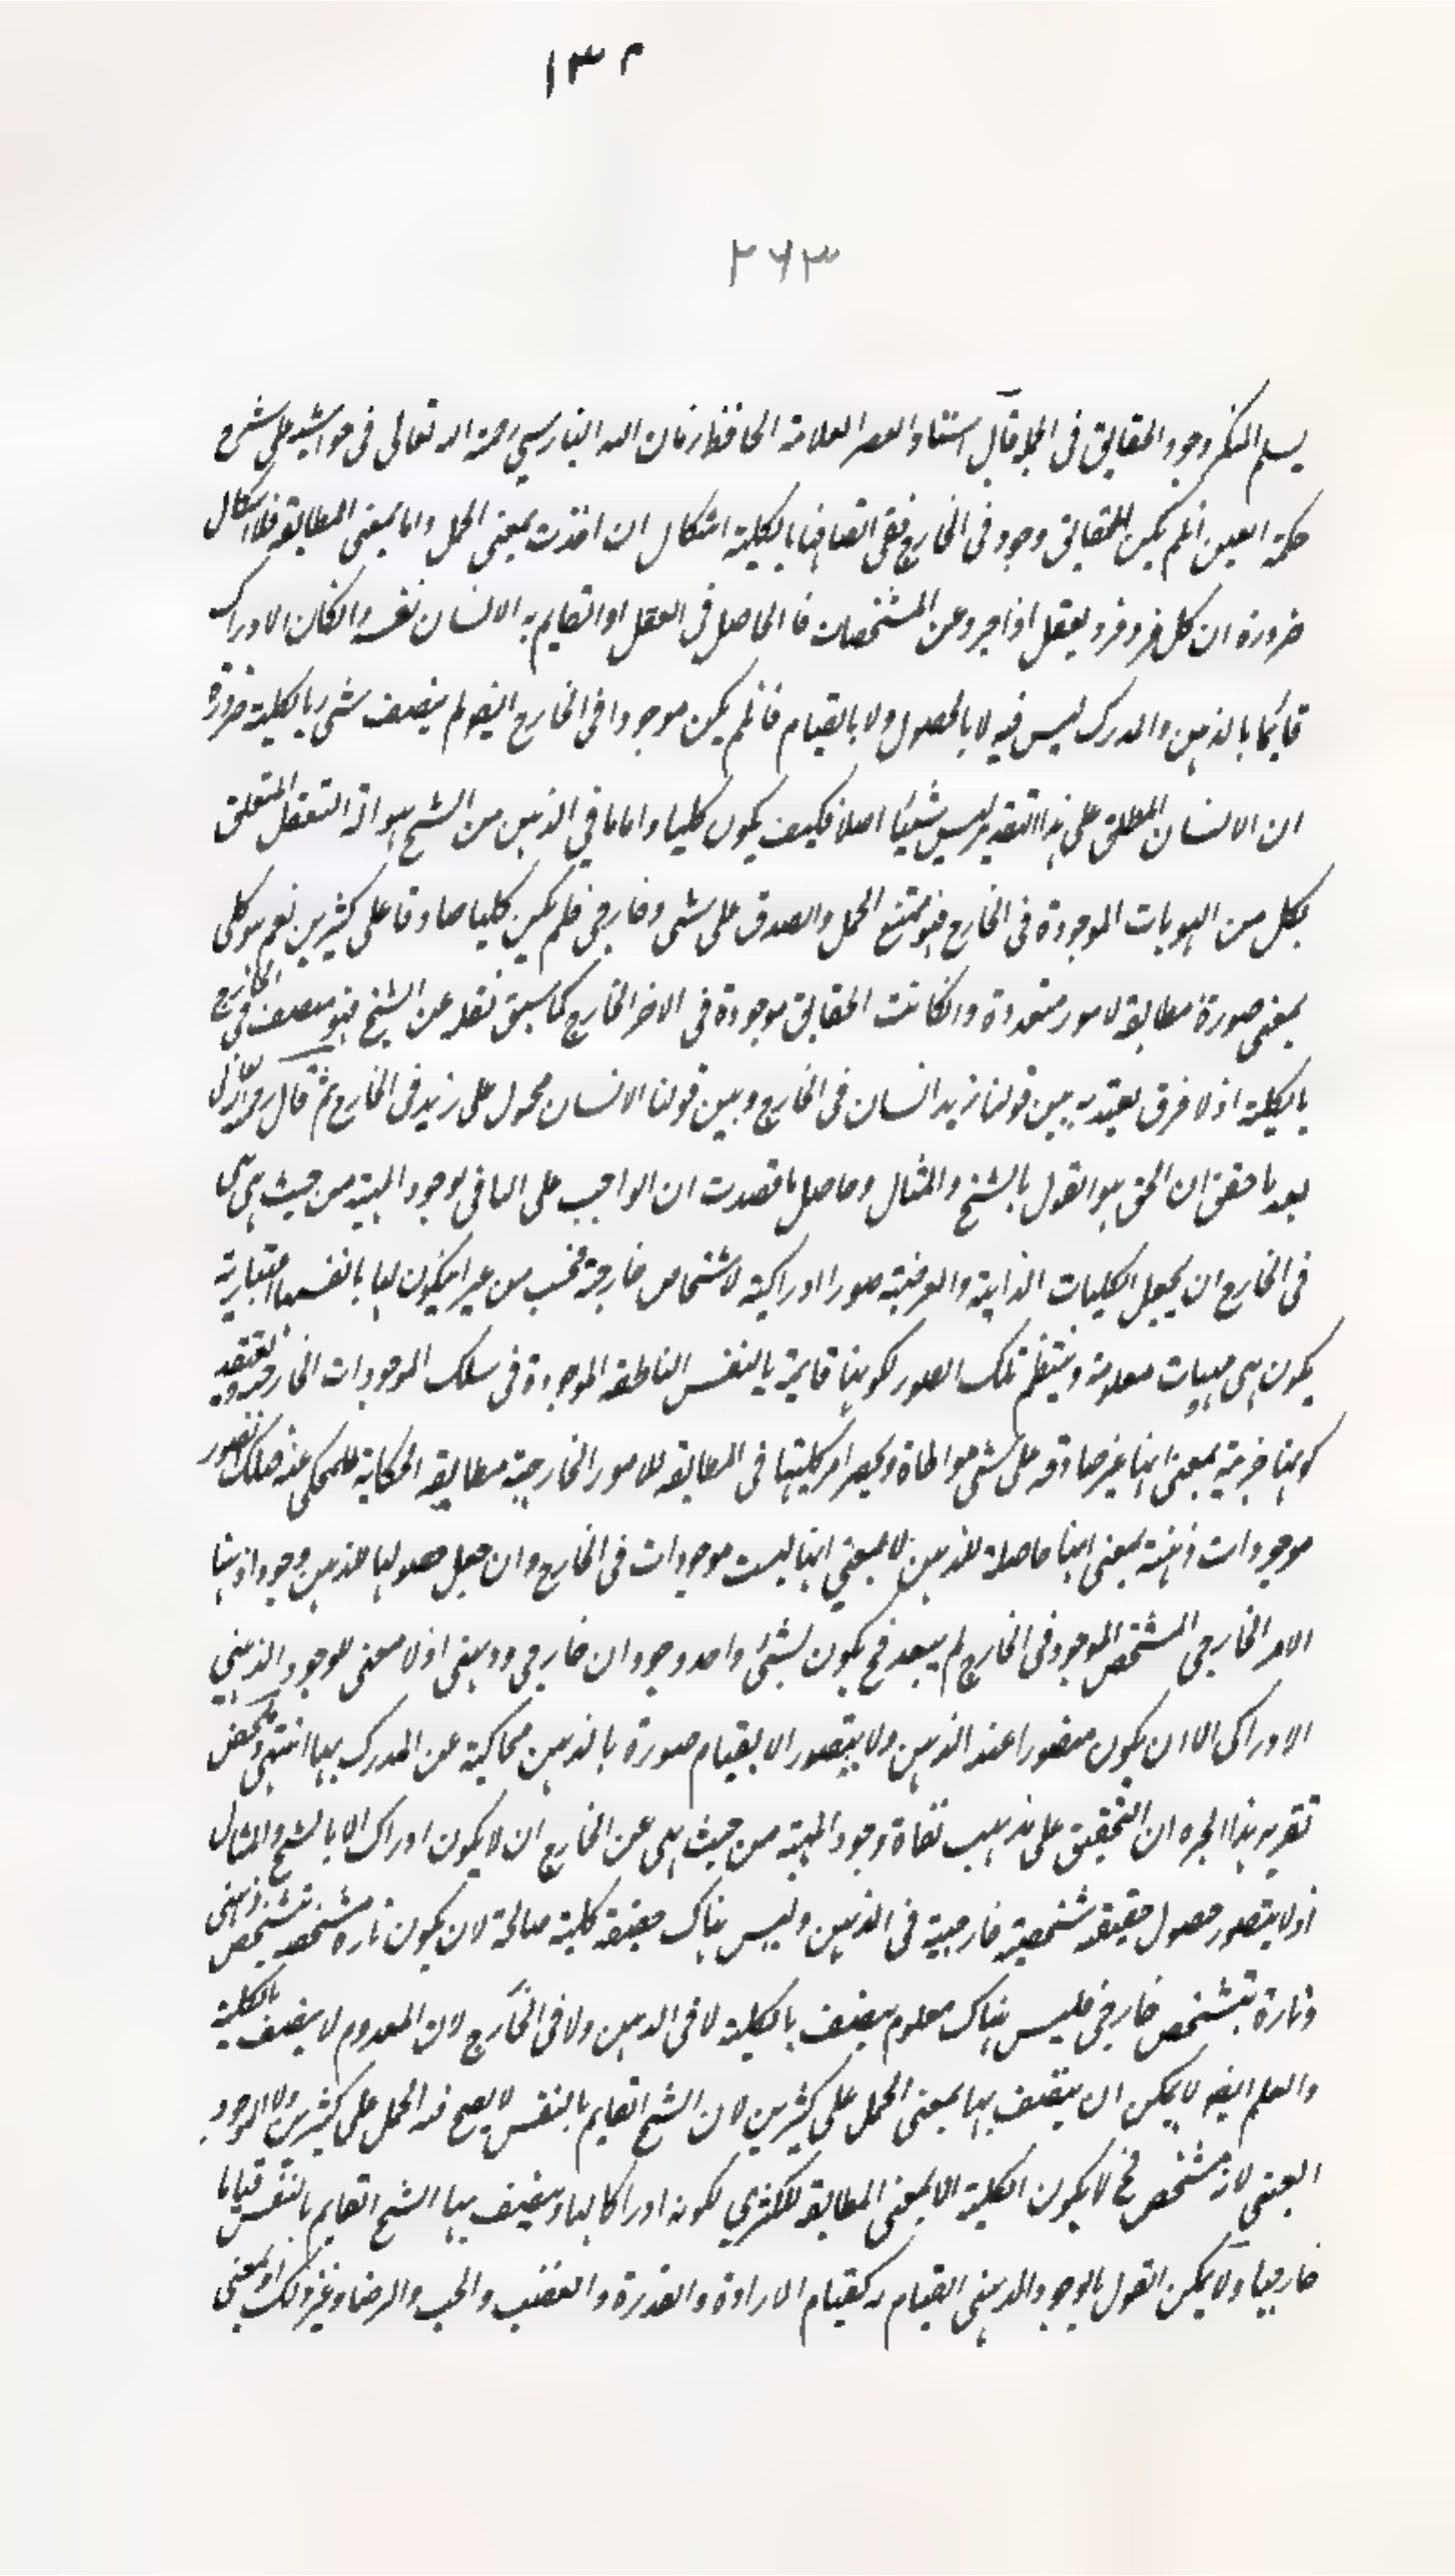 ١٣٢
٢٦٣
يسلم المنكر وجود الحقايق فى الجملة قال استاد العصر العلامة الحافظ امان الله البنارسي رحمة الله تعالى فى حواشيه على شرح
حكمة العين ان لم يكن للحقايق وجود فى الخارج ففى اتصافها بالكلية اشكال ان اخذت بمعنى الحمل واما بمعنى المطابقة فلا اشكال
ضرورة ان كل فرد فرد يعقل اذا جرد عن المشخصات فالحاصل فى العقل او القايم به الانسان نفسه وان كان الادراك
قايما بالذهن والمدرك ليس فيه لا بالحصول ولا بالقيام فان لم يكن موجودا فى الخارج ايضا لم يتصف شىء بالكلية ضرورة
ان الانسان المطلق على هذا التقدير ليس شيئا اصلا فكيف يكون كليا واما ما في الذهن من الشبح هو آلة التعقل المتعلق
بكل من الهويات الموجودة فى الخارج فهو ممتنع الحمل والصدق على شىء خارجى فلم يكن كليا صادقا على كثيرين نعم هو كلى
بمعنى صورة مطابقة لامور متعددة وان كانت الحقايق موجودة فى الاخر الخارج كما سبق نقله عن الشيخ فهو متصف فى الخارج
بالكلية اذ لا فرق يعتد به بين قولنا زيد انسان فى الخارج وبين قولنا الانسان محمول على زيد فى الخارج ثم قال
بعد ما حقق ان الحق هو القول بالشبح والمثال وحاصل ما قصدت ان الواجب على النافى لوجود المهية من حيث هى هى
فى الخارج ان يجعل الكليات الذاتية والعرضية صورا ادراكية لاشخاص خارجية فحسب من غير ان يكون لها بانفسها اعتبارية
يكون هى مهيات معلومة وينتظم تلك الصور لكونها قايمة بالنفس الناطقة الموجودة فى سلك الموجودات الخارجية ويعتقد
كونها جزئية بمعنى انها غير صادقة على شىء مواطاة ويحصر امر كليتها فى المطابقة للامور الخارجية مطابقة الحكاية للمحكى عنه فتلك الصور
موجودات ذهنية بمعنى انها حاصلة للذهن لا بمعنى انها ليست موجودات فى الخارج وان جعل حصولها للذهن وجودا ذهنيا
الامر الخارجى المشخص الموجود فى الخارج لم يبعد فح يكون لشىء واحد وجودان خارجى وذهنى اذ لا معنى للوجود الذهني
الادراكى الا ان يكون متصورا عند الذهن ولا يتصور الا بقيام صورة بالذهن محاكية عن المدرك بها انتهى وملخص
تقرير هذا الحبر ان التحقيق على مذهب نفاة وجود المهية من حيث هى عن الخارج ان لا يكون ادراك الا بالشبح والمثال
اذ لا يتصور حصول حقيقة شخصية خارجية فى الذهن وليس هناك حقيقة كلية صالحة لان يكون تارة مشخصة بتشخص ذهنى
وتارة بتشخص خارجى فليس هناك معلوم يتصف بالكلية لا فى الذهن ولا فى الخارج لان المعدوم لا يتصف بالكلية
والعلم ايضا لا يمكن ان يتصف بها بمعنى الحمل على كثيرين لان الشبح القايم بالنفس لا يصح فيه الحمل على كثيرين ولا الوجود
العينى لانه مشخص فح لا يكون الكلية الا بمعنى المطابقة للكثيرين لكونه ادراكا لها ويتصف بها الشبح القايم بالنفس قياما
خارجيا ولا يمكن القول بالوجود الذهنى القيام به كقيام الارادة والقدرة والغضب والحب والرضا وغير ذلك او بمعنى